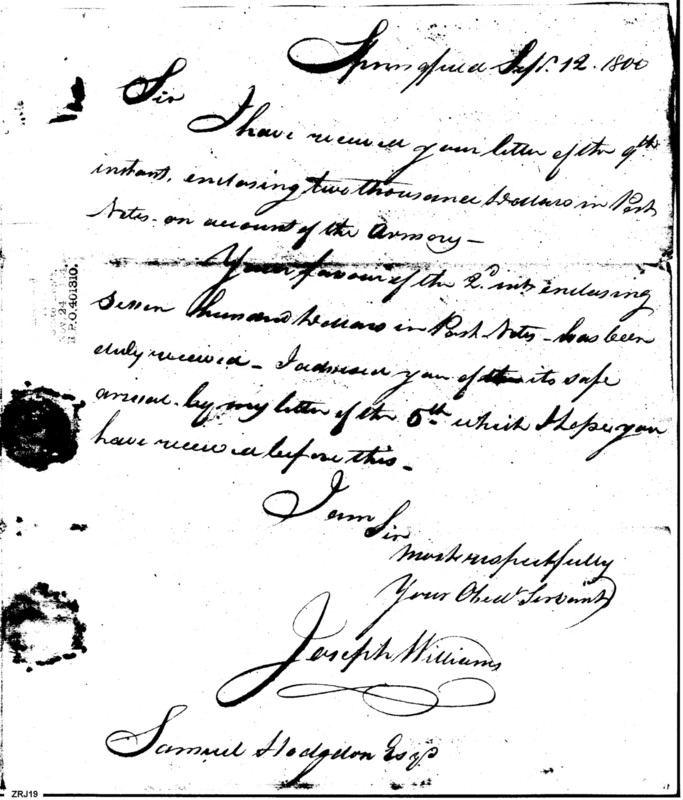 Springfield Sept. 12. 1800
Sir
I have received your letter of the 9th
instant, enclosing two thousand Dollars in Post
Notes - on account of the Armory -
Your favour of the 2d inst enclosing
Seven thousand Dollars in Post Notes - has been
duly received - I advised you of its safe
arrival by my letter of the 5th which I hope you
have received before this -
I am
Sir
Most respectfully
Your Obedt Servant
Joseph Williams
Samuel Hodgdon Esqr
Nov. 24
H.P.O. 401310.
ZRJ19